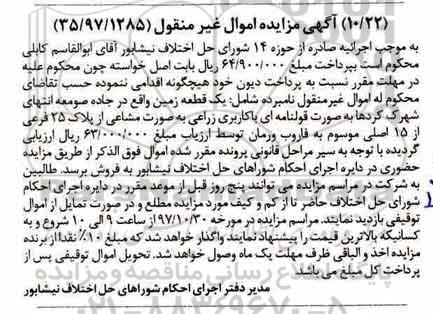 (۱۰/۲۲) آگهی مزایده اموال غیر منقول (۳۵/۹۷/۱۲۸۵)
به موجب اجرائیه صادره از حوزه ۱۴ شورای حل اختلاف نیشابور آقای ابوالقاسم کابلی
محکوم است بپرداخت مبلغ ۶۴/۹۰۰/۰۰۰ ریال بابت اصل خواسته چون محکوم علیه
در مهلت مقرر نسبت به پرداخت دیون خود هیچگونه اقدامی ننموده حسب تقاضای
محکوم له اموال غیرمنقول نامبرده شامل: یک قطعه زمین واقع در جاده صومعه انتهای
شهرک گردها به صورت قولنامه ای باکاربری زراعی به صورت مشاعی از پلاک ۲۵ فرعی
از ۱۵ اصلی موسوم به فاروب ورمان توسط ارزیاب مبلغ ۶۳/۰۰۰/۰۰۰ ریال ارزیابی
گردیده با توجه به سیر مراحل قانونی پرونده مقرر شده اموال فوق الذکر از طریق مزایده
حضوری در دایره اجرای احکام شوراهای حل اختلاف نیشابور به فروش برسد. طالبین
به شرکت در مراسم مزایده می توانند پنج روز قبل از موعد مقرر در دایره اجرای احکام
شورای حل اختلاف حاضر تا از کم و کیف مورد مزایده مطلع و در صورت تمایل از اموال
توقیفی بازدید نمایند. مراسم مزایده در مورخه ۹۷/۱۰/۳۰ از ساعت ۹ الی ۱۰ شروع و به
کسانیکه بالاترین قیمت را پیشنهاد نمایند واگذار خواهد شد که مبلغ ۱۰٪ نقدا از برنده
مزایده اخذ و الباقی ظرف مهلت یک ماه وصول خواهد شد. تحویل اموال توقیفی پس از
پرداخت کل مبلغ می باشد.
مدیر دفتر اجرای احکام شوراهای حل اختلاف نیشابور